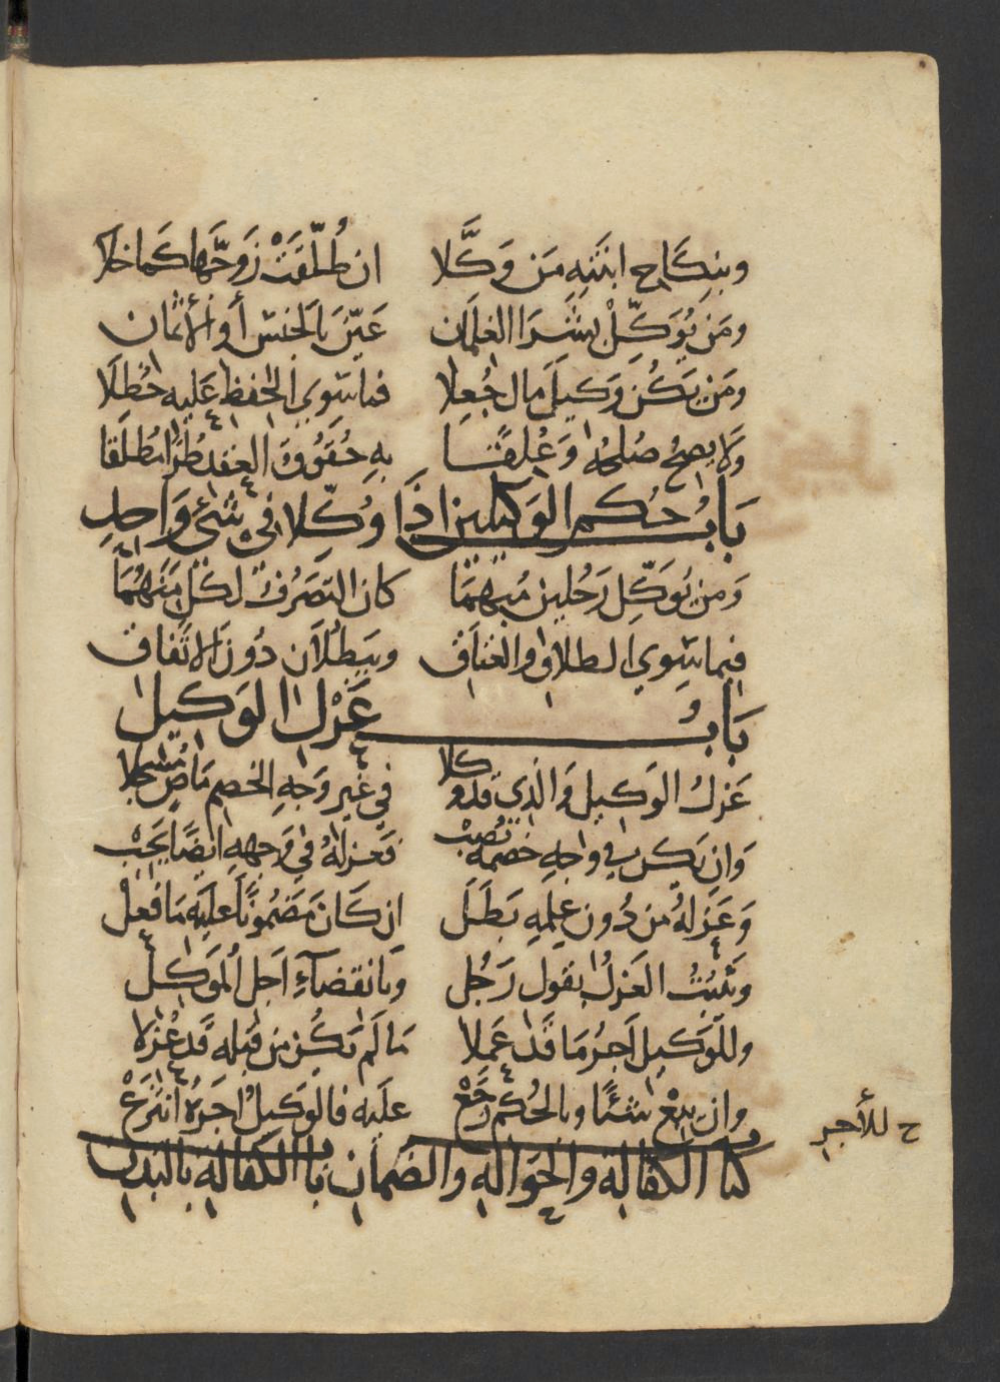 وبنِكَاحِ ابنَتِهِ مَن وَكَّلا ان طُلّقَتْ زَوَجّهَا كَما خلا
ومَن يُوَكِّلْ بِشَرَا الغلمَان عَيّنَ بالجنس أَو الأثمان
ومَن يَكُن وَكيلَ مال جُعِلا فما سِوي الحفظِ عَليه حُظِلَا
وَلا يصحُ صُلحُهُ وَعُلقَا بِهِ حُقوُقَ العقد طُرّا مُطلَقا
بَابُ حُكم الوَكيلين اذَا وُكِّلا في شئ وَاحِدٍ
وَمن يُوَكِّل رَجُلين مُبهمَا كان التصَرُفُ لكُلٍ مِنهُمَا
فيما سِوي الطلاق والعتاق ويَبطُلَان دُونَ الاتفاق
بَابُ عَزْل الوَكيل
عَزلُ الوَكيل وَالذي قد وكلا في غير وَجهِ الخصم مَاضٍ مُسجَلا
وَان يكن في واجهِ خصمه نُصِبْ فعزلهُ في وَجههِ ايضًا يَجبْ
وَعَزلهُ من دُون عِلمِهِ بَطَلَ ان كَانَ مَضمُونًا عليَه مَا فعلْ
ويَثبُتُ العَزلُ بقول رَجُل وبانقضآءِ اجَل المُوَكِلْ
وللوَكيل اَجرُ مَا قَد عَملا مَا لَم يَكُن من قبَله قَد عُزلا
وان يبعْ شئًا وبالحُكم رَجَعْ علَيه فالوَكيلُ اجرَهُ انتزعْ
ح للأجر
كتاب الكفالة والحَوَالهِ والضمان باب الكفالة بالبدن